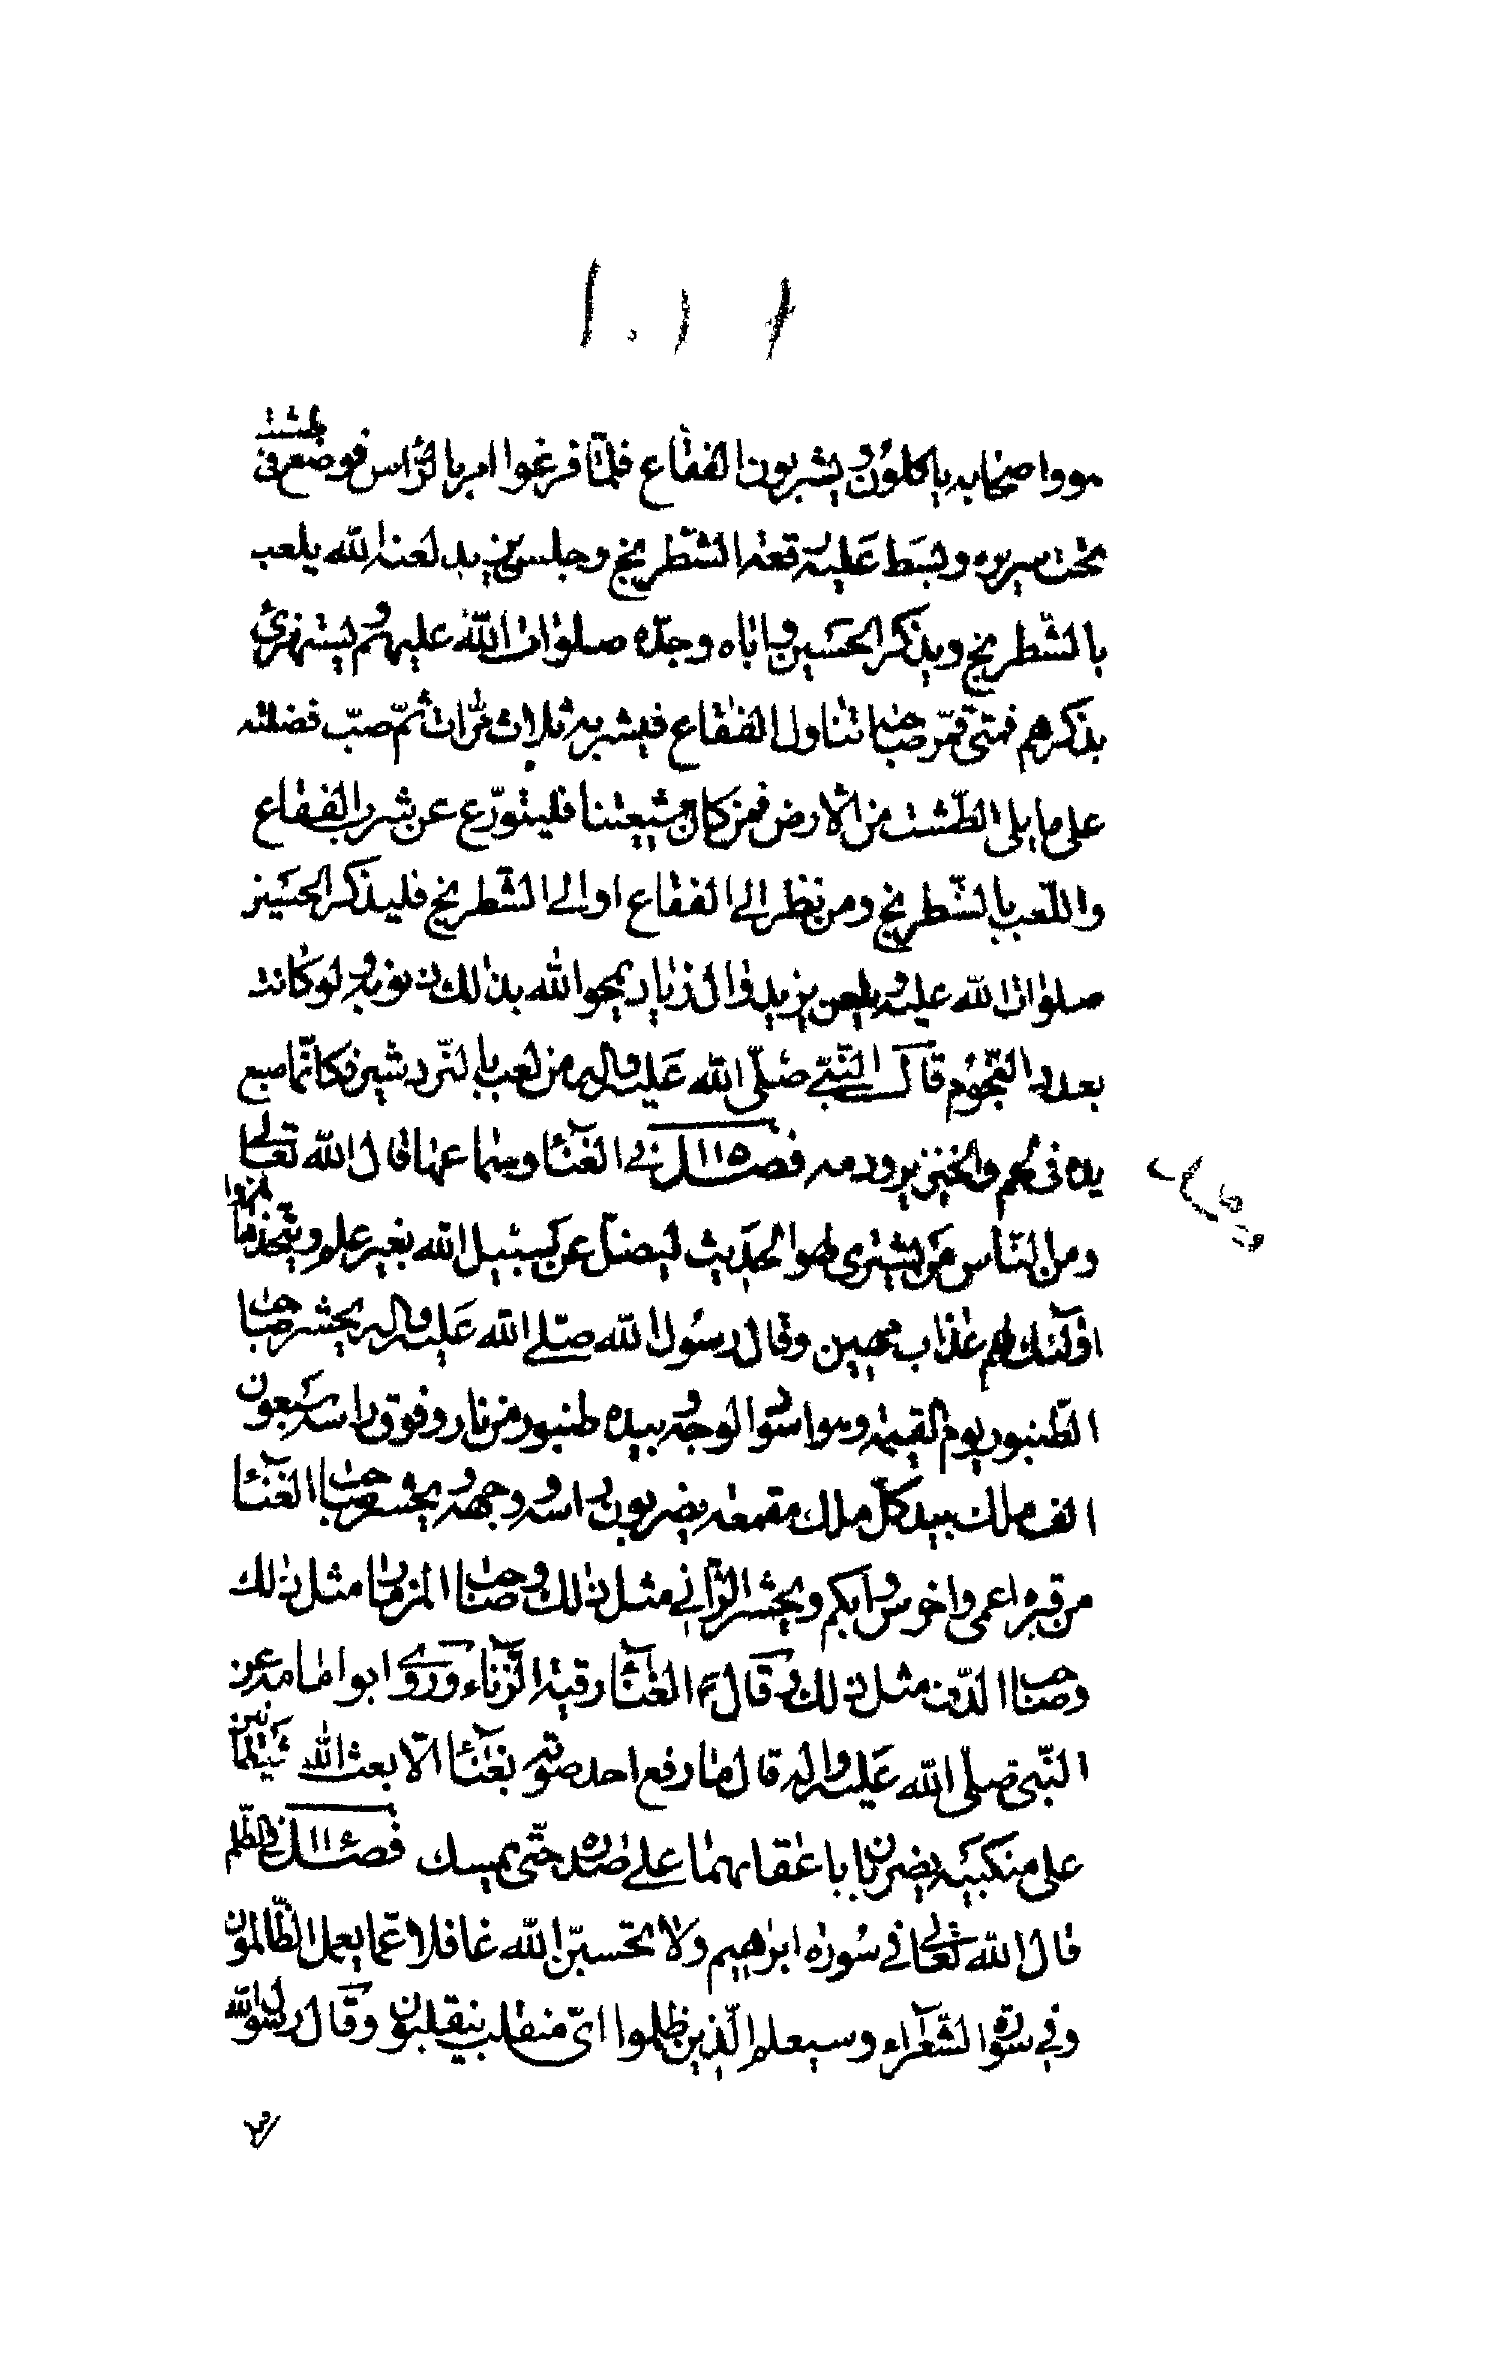 ١٠١
هو واصحابه ياكلون ويشربون الفقاع فلمّا فرغوا امر بالرّاس فوضع فى طشت
تحت سريره وبسط عليه رقعة الشّطرنج وجلس يزيد لعنه الله يلعب
بالشّطرنج ويذكر الحسين واباه وجدّه صلوات الله عليهم ويستهزئ
بذكرهم فمتى قمر صاحبه تناول الفقاع فيشربه ثلاث مرّات ثمّ صبّ فضلته
على ما يلى الطّشت من الارض فمن كان من شيعتنا فليتورّع عن شرب الفقاع
واللّعب بالشّطرنج ومن نظر الى الفقاع او الى الشّطرنج فليذكر الحسين
صلوات الله عليه وليلعن يزيد وال زياد يمحو الله بذلك ذنوبه ولو كانت
بعدد النّجوم قال النّبىّ صلّى الله عليه واله من لعب بالنّرد شير فكانّما صبع
يده فى لحم الخنزير ودمه فصل ١١٥ فى الغناء وسماعها قال الله تعالى
ومن النّاس من يشترى لهو الحديث ليضلّ عن سبيل الله بغير علم ويتّخذها هزوا
اولئك لهم عذاب مهين وقال رسول الله صلّى الله عليه واله يحشر صاحب
الطّنبور يوم القيمة وهو اسود الوجه وبيده طنبور من نار وفوق راسه سبعون
الف ملك بيد كلّ ملك مقمعه يضربون راسه ووجهه ويحشر صاحب الغناء
من قبره اعمى واخرس وابكم ويحشر الزّانى مثل ذلك وصاحب المزمار مثل ذلك
وصاحب الدّف مثل ذلك وقال ع الغناء رقية الزّناء وروى ابو امامه عن
النّبى صلّى الله عليه واله قال ما رفع احد صوته بغناء الّا بعث الله شيطانين
على منكبيه يضربان باعقابهما على صدره حتّى يمسك فصل ١١٦ فى الظّلم
قال الله تعالى فى سورة ابرهيم ولا تحسبنّ الله غافلا عمّا يعمل الظّالمون
وفى سورة الشّعراء وسيعلم الّذين ظلموا اىّ منقلب ينقلبون وقال رسول الله